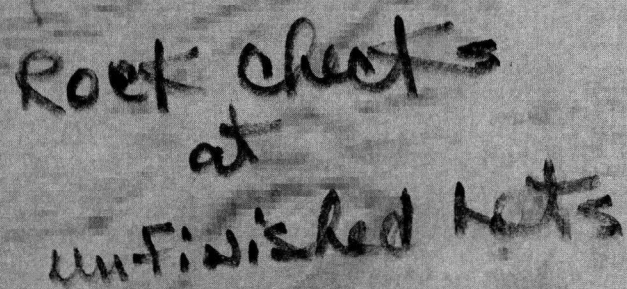 Rock checks
at
unfinished Lots